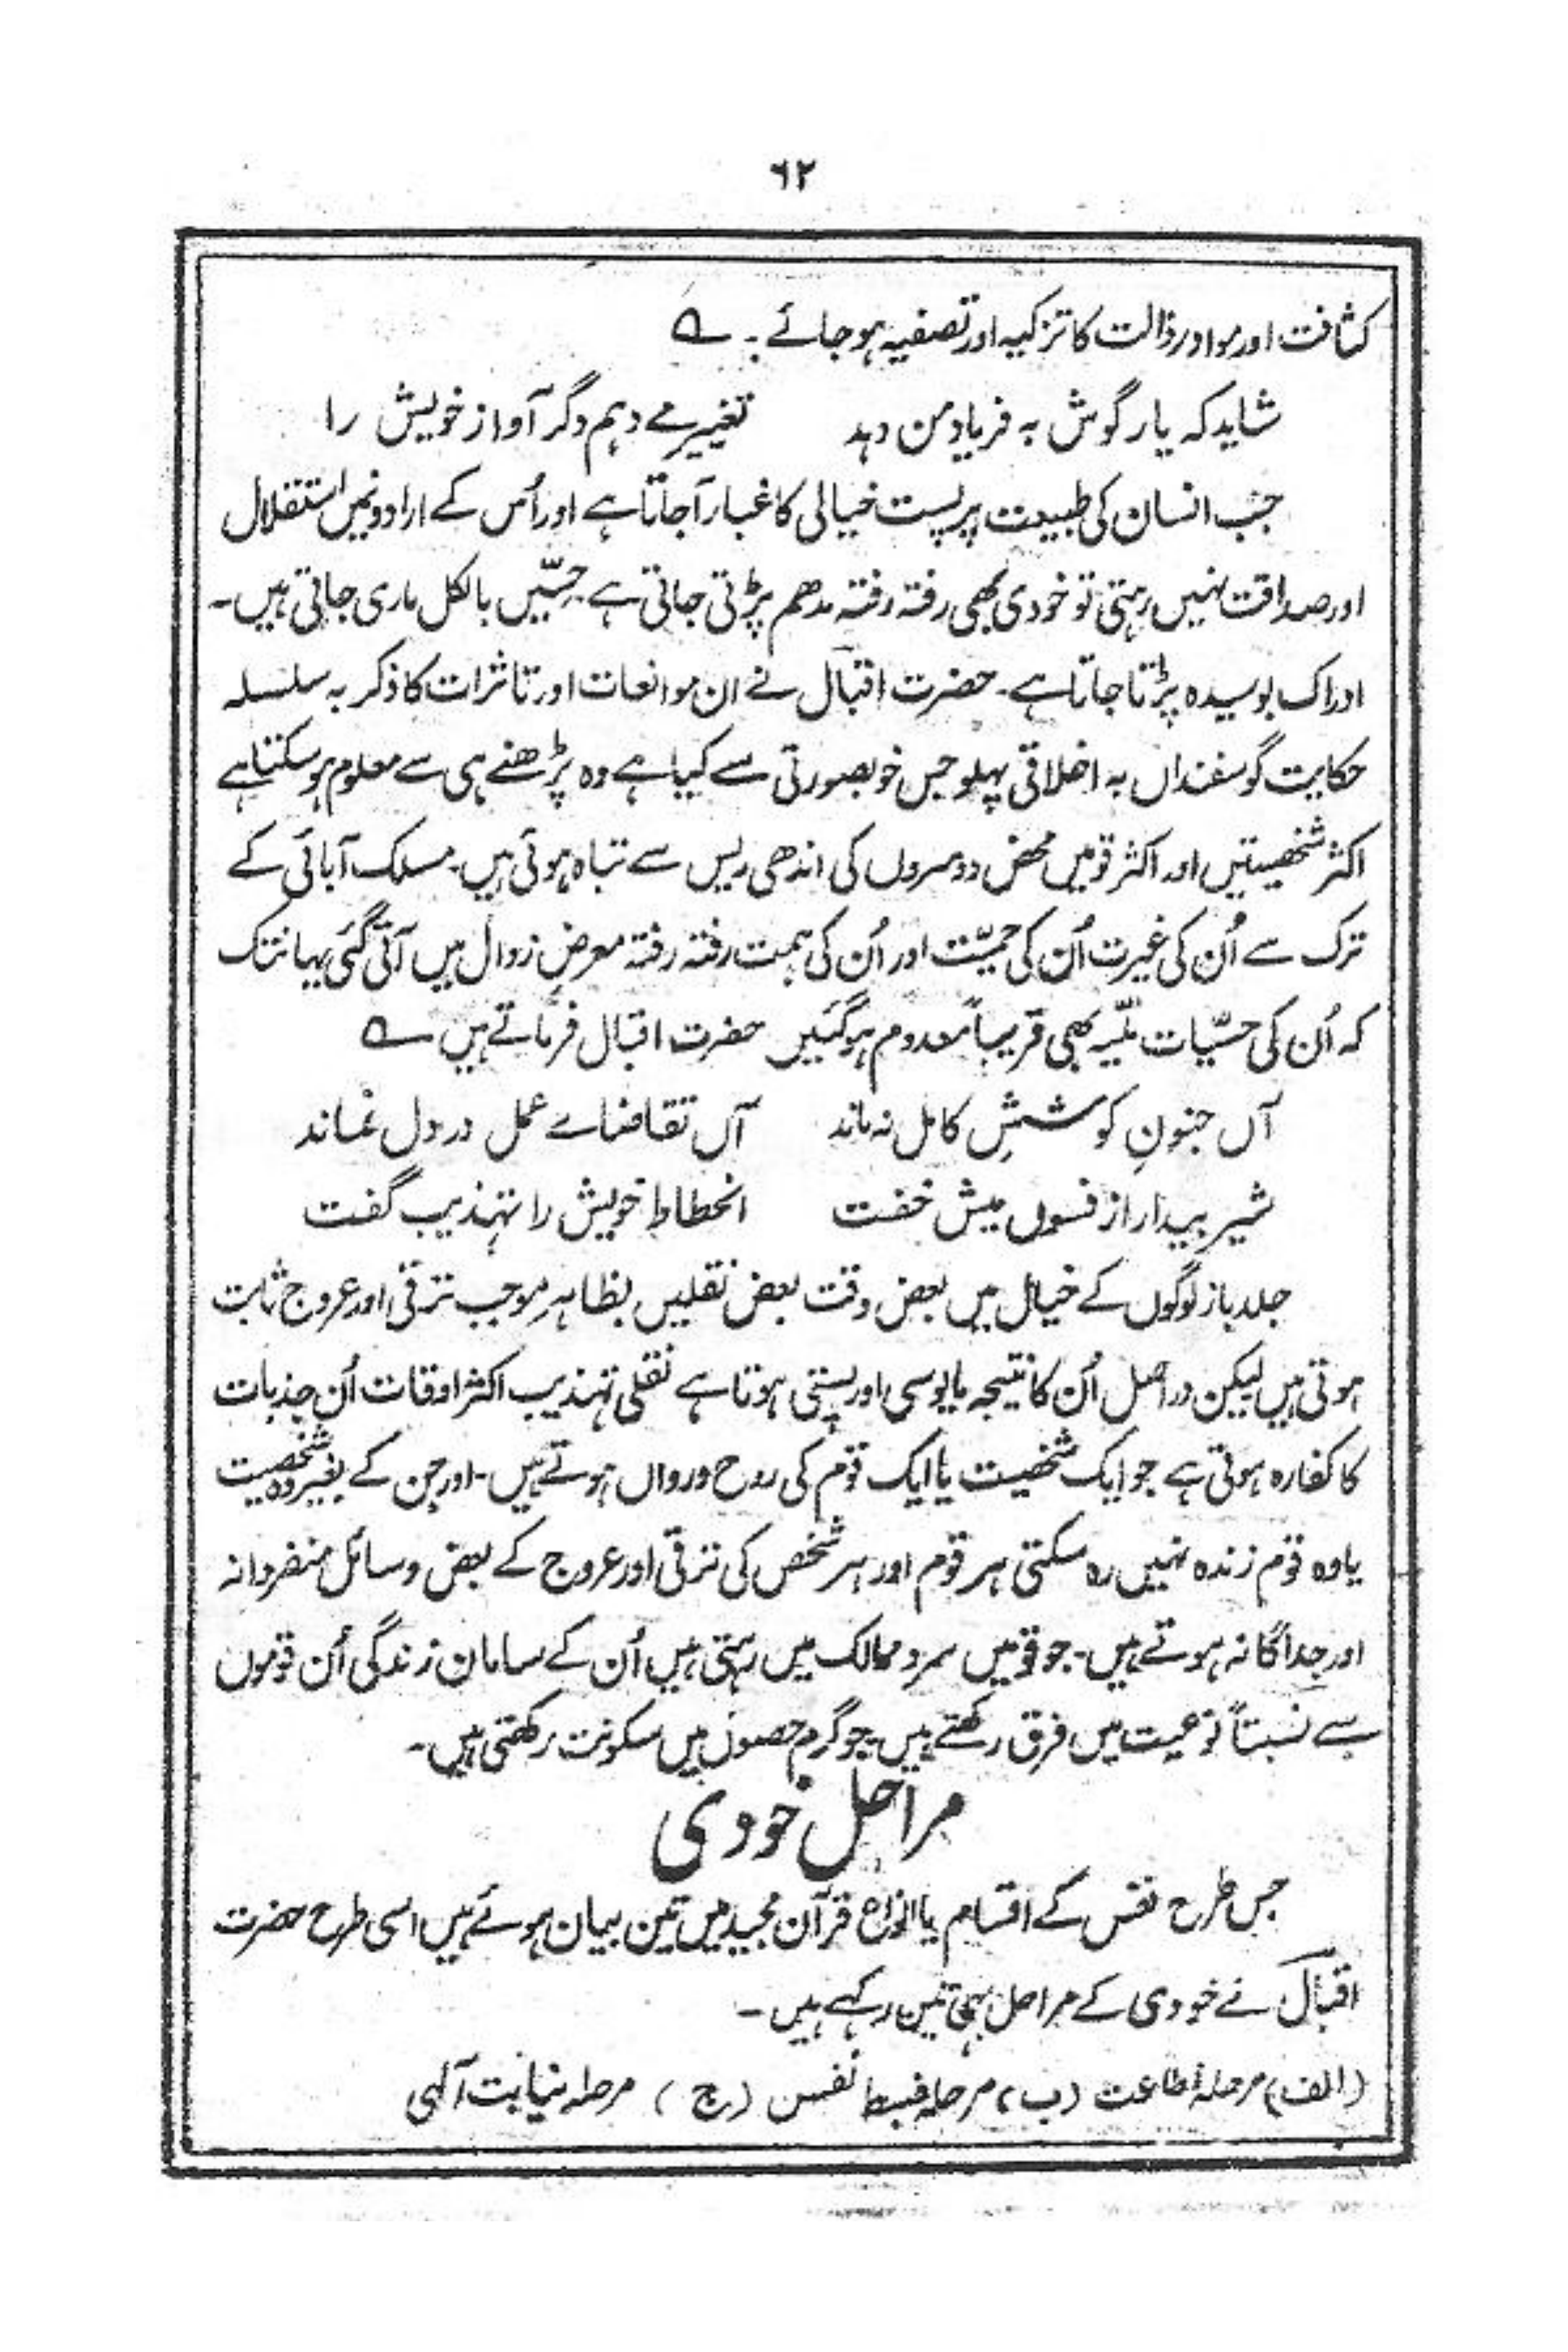 ۶۲
کثافت اور مواد رذالت کا تزکیہ اور تصفیہ ہو جائے۔ ؎
شاید کہ یار گوش بہ فریاد من دہد تغییر مے دہم دگر آواز خویش را
جب انسان کی طبیعت پر پست خیالی کا غبار آ جاتا ہے اور اُس کے ارادونمیں استقلال
اور صداقت نہیں رہتی تو خودی بھی رفتہ رفتہ مدھم پڑتی جاتی ہے۔ حِسّیں بالکل ماری جاتی ہیں۔
ادراک بوسیدہ پڑتا جاتا ہے۔ حضرت اقبال نے ان موانعات اور تاثرات کا ذکر بہ سلسلہ
حکایت گوسفنداں بہ اخلاقی پہلو جس خوبصورتی سے کیا ہے وہ پڑھنے ہی سے معلوم ہو سکتا ہے
اکثر شخصیتیں اور اکثر قومیں محض دوسروں کی اندھی ریس سے تباہ ہوئی ہیں۔ مسلک آبائی کے
ترک سے اُن کی غیرت اُن کی حمیّت اور اُن کی ہمت رفتہ رفتہ معرضِ زوال میں آتی گئی یہانتک
کہ اُن کی حسّیات ملّیہ بھی قریباً معدوم ہو گئیں حضرت اقبال فرماتے ہیں ؎
آں جنونِ کوششِ کامل نہ ماند آں تقاضاے عمل در دل نماند
شیر بیدار از فسوں میش خفت انحطاطِ خویش را تہذیب گفت
جلد باز لوگوں کے خیال میں بعض وقت بعض نقلیں بظاہر موجب ترقی اور عروج ثابت
ہوتی ہیں لیکن در اصل اُن کا نتیجہ مایوسی اور پستی ہوتا ہے نقلی تہذیب اکثر اوقات اُن جذبات
کا کفارہ ہوتی ہے جو ایک شخصیت یا ایک قوم کی روح و رواں ہوتے ہیں۔ اور جن کے بغیر وہ شخصیت
یا وہ قوم زندہ نہیں رہ سکتی ہر قوم اور ہر شخص کی ترقی اور عروج کے بعض وسائل منفردانہ
اور جداگانہ ہوتے ہیں۔ جو قومیں سرد ممالک میں رہتی ہیں اُن کے سامان زندگی اُن قوموں
سے نسبتاً نوعیت میں فرق رکھتے ہیں۔ جو گرم حصوں میں سکونت رکھتی ہیں۔
مراحل خودی
جس طرح نفس کے اقسام یا انواع قرآن مجید میں تین بیان ہوئے ہیں اسی طرح حضرت
اقبال نے خودی کے مراحل بھی تین رکہے ہیں۔
(الف) مرحلہ اطاعت (ب) مرحلہ ضبط نفس (ج) مرحلہ نیابت آلہی